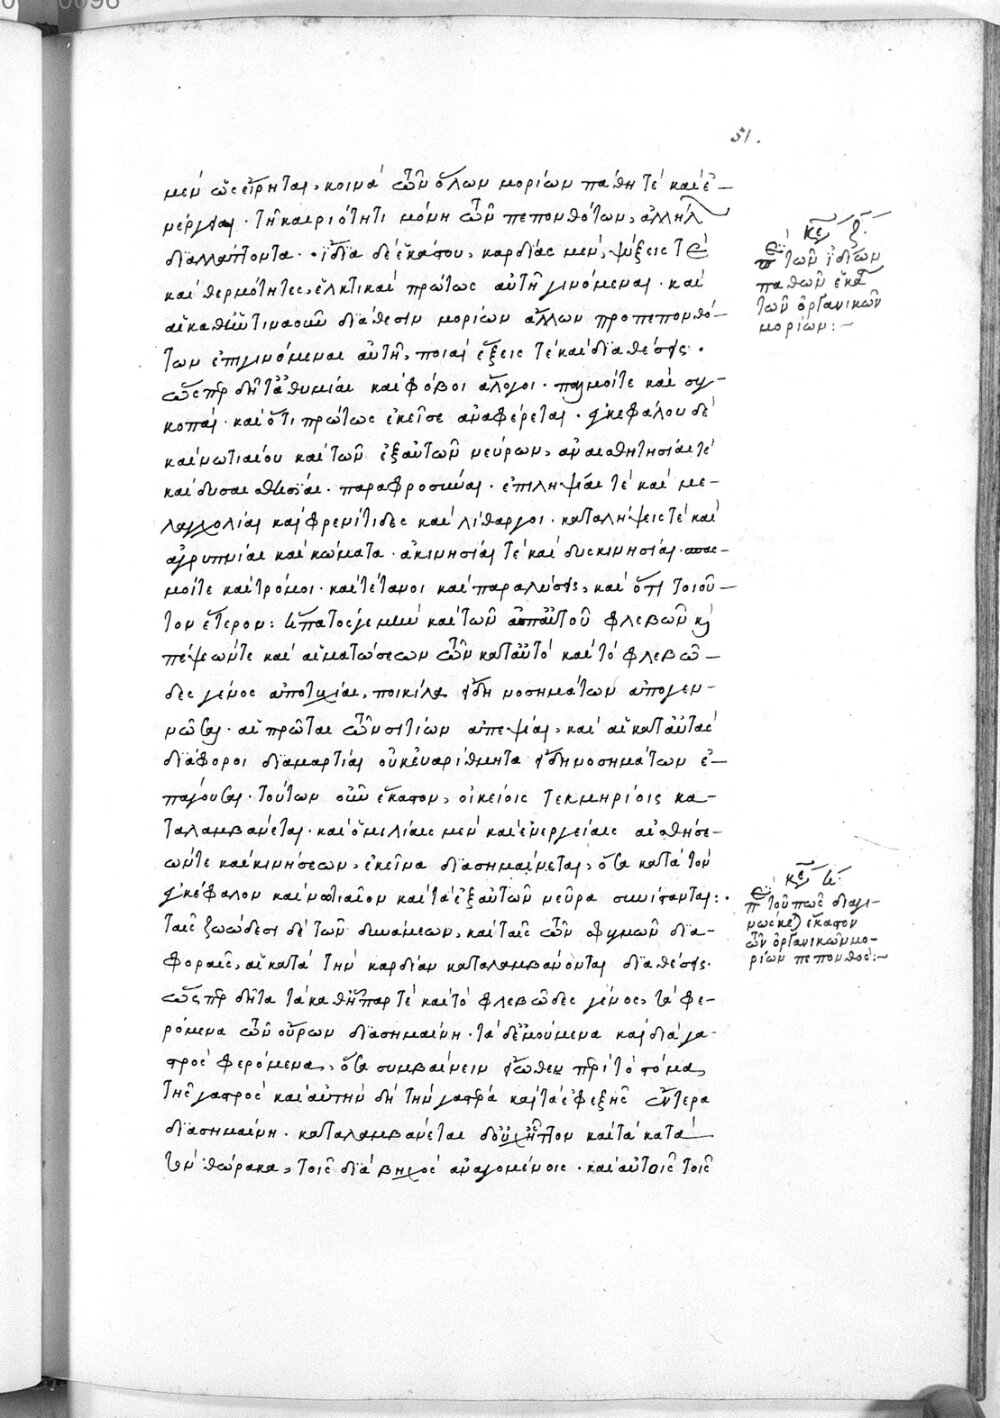 51.
μὲν ὡς εἴρηται, κοινὰ τῶν ὅλων μορίων πάθη τὲ καὶ ἐ-
νέργειαι· τῇ καιριότητι μόνῃ τῶν πεπονθότων, ἀλλήλων
διαλλάττοντα· ἴδια δὲ ἑκάστου, καρδίας μὲν, ψύξεις τὲ
καὶ θερμότητες, ἑλκτικαὶ πρώτως αὐτῇ γινόμεναι· καὶ
αἱ καθ' ἥντιναοῦν διάθεσιν μορίων ἄλλων προπεπονθό-
των ἐπιγινόμεναι αὐτῇ, ποιαὶ ἕξεις τὲ καὶ διαθέσεις·
ὥσπερ δῆτα ἀθυμίαι καὶ φόβοι ἄλογοι· παλμοί τε καὶ συγ-
κοπαί· καὶ ὅτι πρώτως ἐκεῖσε ἀναφέρεται· ἐγκεφάλου δὲ
καὶ νωτιαίου καὶ τῶν ἐξ αὐτῶν νεύρων, ἀναισθησίαι τὲ
καὶ δυσαισθησίαι· παραφροσύναι· ἐπιληψίαι τὲ καὶ με-
λαγχολίαι καὶ φρενίτιδες καὶ λήθαργοι· καταλήψεις τὲ καὶ
ἀγρυπνίαι καὶ κώματα· ἀκινησίαι τὲ καὶ δυσκινησίαι· σπασ-
μοί τε καὶ τρόμοι· καὶ τέτανοι καὶ παραλύσεις, καὶ ὅτι τοιοῦ-
τον ἕτερον: ἥπατος γε μὴν καὶ τῶν ἀπ' αὐτοῦ φλεβῶν καὶ
πέψεών τε καὶ αἱματώσεων τῶν κατ' αὐτὸ καὶ τὸ φλεβῶ-
δες γένος ἀποτυχίαι, ποικίλα εἴδη νοσημάτων ἀπογεν-
νῶσι· αἱ πρῶται τῶν σιτίων ἀπεψίαι, καὶ αἱ κατ' αὐτὰς
διάφοροι διαμαρτίαι οὐκ εὐαρίθμητα εἴδη νοσημάτων ἐ-
πάγουσι· τούτων οὖν ἕκαστον, οἰκείοις τεκμηρίοις κα-
ταλαμβάνεται· καὶ ὁμιλίαις μὲν καὶ ἐνεργείαις αἰσθήσε-
ών τε καὶ κινήσεων, ἐκεῖνα διασημαίνεται, ὅσα κατὰ τὸν
ἐγκέφαλον καὶ νωτιαῖον καὶ τὰ ἐξ αὐτῶν νεῦρα συνίσταται:
ταῖς ζωώδεσι δὲ τῶν δυνάμεων, καὶ ταῖς τῶν σφυγμῶν δια-
φοραῖς, αἱ κατὰ τὴν καρδίαν καταλαμβάνονται διαθέσεις·
ὥσπερ δῆτα τὰ καθ' ἧπαρ τὲ καὶ τὸ φλεβῶδες γένος, τὰ φε-
ρόμενα τῶν οὔρων διασημαίνει· τὰ δ' ἐμούμενα καὶ διὰ γα-
στρὸς φερόμενα, ὅσα συμβαίνειν εἴωθεν περὶ τὸ στόμα
τῆς γαστρὸς καὶ αὐτὴν δὴ τὴν γαστέρα καὶ τὰ ἐφεξῆς ἔντερα
διασημαίνει· καταλαμβάνεται δ' οὐχ ἧττον καὶ τὰ κατὰ
τὸν θώρακα, τοῖς διὰ βηχὸς ἀναγομένοις· καὶ αὐτοῖς τοῖς
κεφ ζ.
περὶ τῶν ἰδίων
παθῶν ἑκάσ
των ὀργανικῶν
μορίων:~
κεφ η.
περὶ τοῦ πῶς διαγι-
νώσκεται ἕκαστον
τῶν ὀργανικῶν μο-
ρίων πεπονθός:~